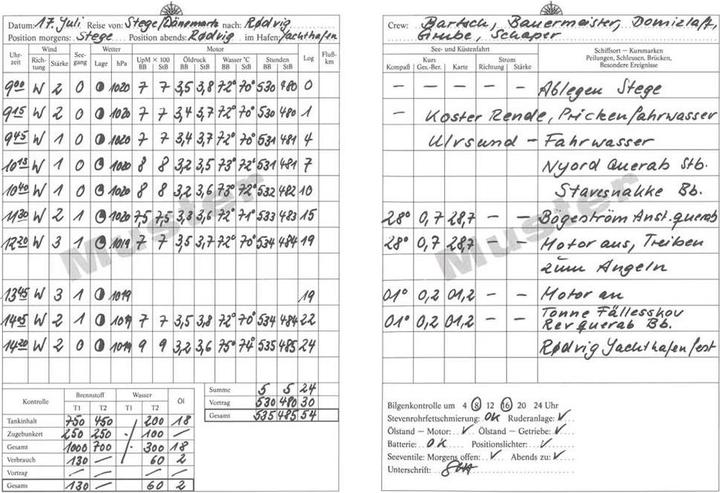 Datum: 17. Juli Reise von: Stege/Dänemark nach: Rødvig
Position morgens: Stege Position abends: Rødvig im Hafen: Yachthafen
Uhrzeit Wind Seegang Wetter Motor Log Flußkm
Richtung Stärke Lage hPa UpM × 100 Öldruck Wasser °C Stunden
BB StB BB StB BB StB BB StB
9 00 W 2 0 1020 7 7 3,5 3,8 72° 70° 530 480 0
9 15 W 2 0 1020 7 7 3,4 3,7 72° 70° 530 480 1
9 45 W 1 0 1020 7 7 3,4 3,7 72° 70° 531 481 4
10 13 W 1 0 1020 8 8 3,2 3,5 73° 72° 531 481 7
10 40 W 1 0 1020 8 8 3,2 3,6 73° 72° 532 482 10
11 30 W 2 1 1020 75 75 3,3 3,6 72° 71° 533 483 15
12 20 W 3 1 1019 7 7 3,5 3,7 72° 70° 534 484 19
13 45 W 3 1 1019 19
14 05 W 2 1 1019 7 7 3,5 3,8 72° 70° 534 484 22
14 20 W 2 0 1019 9 9 3,2 3,6 75° 74° 535 485 24
Muster
Summe 5 5 24
Vortrag 530 480 30
Gesamt 535 485 54
Kontrolle Brennstoff Wasser Öl
T1 T2 T1 T2
Tankinhalt 750 450 200 18
Zugebunkert 250 250 100 –
Gesamt 1000 700 300 18
Verbrauch 130 – 60 2
Vortrag – – – –
Gesamt 130 – 60 2
Crew: Bartsch, Bauermeister, Domizlaff,
Grube, Schaper
See- und Küstenfahrt Schiffsort - Kursmarken
Peilungen, Schleusen, Brücken,
Besondere Ereignisse
Kompaß Kurs Ges.-Ber. Karte Strom
Richtung Stärke
– – – – – Ablegen Stege
– Koster Rende, Prickenfahrwasser
Ulvsund – Fahrwasser
Nyord Querab Stb.
Stavesnakke Bb.
28° 0,7 28,7 – – Bögeström Anst. querab
28° 0,7 28,7 – – Motor aus, Treiben
zum Angeln
01° 0,2 01,2 – – Motor an
01° 0,2 01,2 – – Tonne Fällesskov
Rev querab Bb.
Rødvig Yachthafen fest
Muster
Bilgenkontrolle um 4 8 12 16 20 24 Uhr
Stevenrohrfettschmierung: OK Ruderanlage: ✓
Ölstand – Motor: ✓ Ölstand – Getriebe: ✓
Batterie: OK Positionslichter: ✓
Seeventile: Morgens offen: ✓ Abends zu: ✓
Unterschrift: